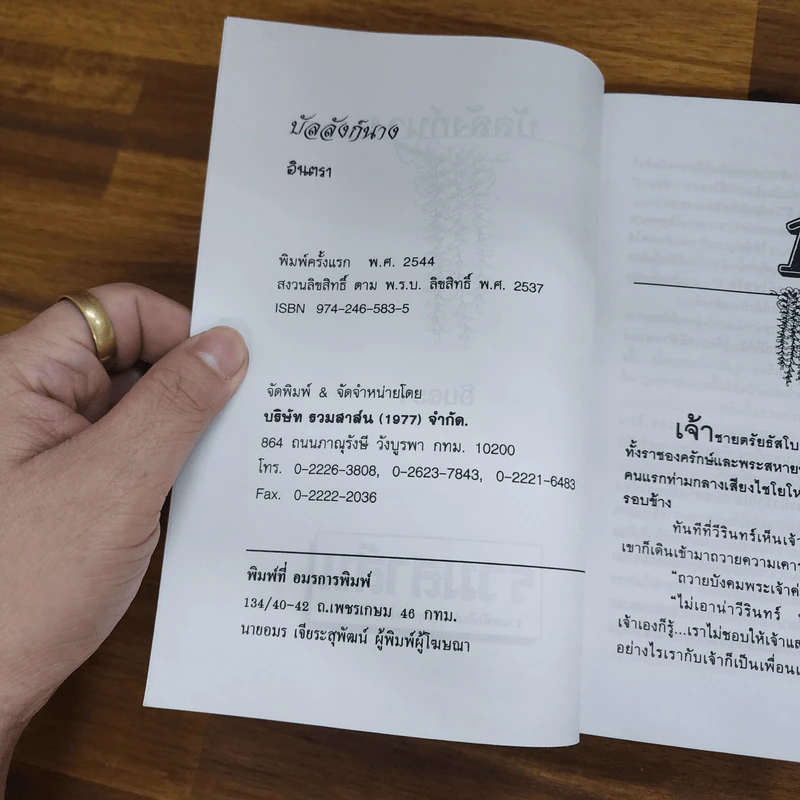 บัลลังก์นาง
อินตรา
พิมพ์ครั้งแรก พ.ศ. 2544
สงวนลิขสิทธิ์ ตาม พ.ร.บ. ลิขสิทธิ์ พ.ศ. 2537
ISBN 974-246-583-5
จัดพิมพ์ & จัดจำหน่ายโดย
บริษัท รวมสาส์น (1977) จำกัด.
864 ถนนภาณุรังษี วังบูรพา กทม. 10200
โทร. 0-2226-3808, 0-2623-7843, 0-2221-6483
Fax. 0-2222-2036
พิมพ์ที่ อมรการพิมพ์
134/40-42 ถ.เพชรเกษม 46 กทม.
นายอมร เจียระสุพัฒน์ ผู้พิมพ์ผู้โฆษณา
เจ้าชายตรัยธัสโบ
ทั้งราชองครักษ์และพระสหาย
คนแรกท่ามกลางเสียงไชโยโห
รอบข้าง
ทันทีที่วีรินทร์เห็นเจ้า
เขาก็เดินเข้ามาถวายความเคาร
"ถวายบังคมพระเจ้าค่
"ไม่เอาน่าวีรินทร์
เจ้าเองก็รู้...เราไม่ชอบให้เจ้าแส
อย่างไรเรากับเจ้าก็เป็นเพื่อน